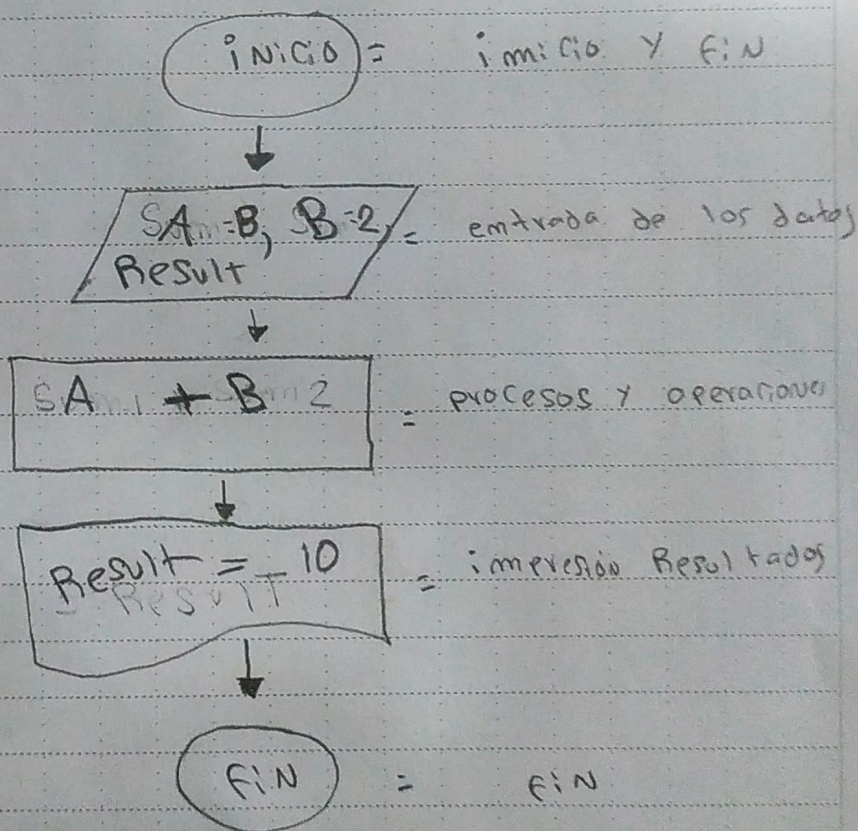 iNiCiO = imicio y FiN
A = 8, B = 2, = emtrada de los datos
Result
A + B = procesos y operaciones
Result = 10 = impresión Resultados
FiN = FiN